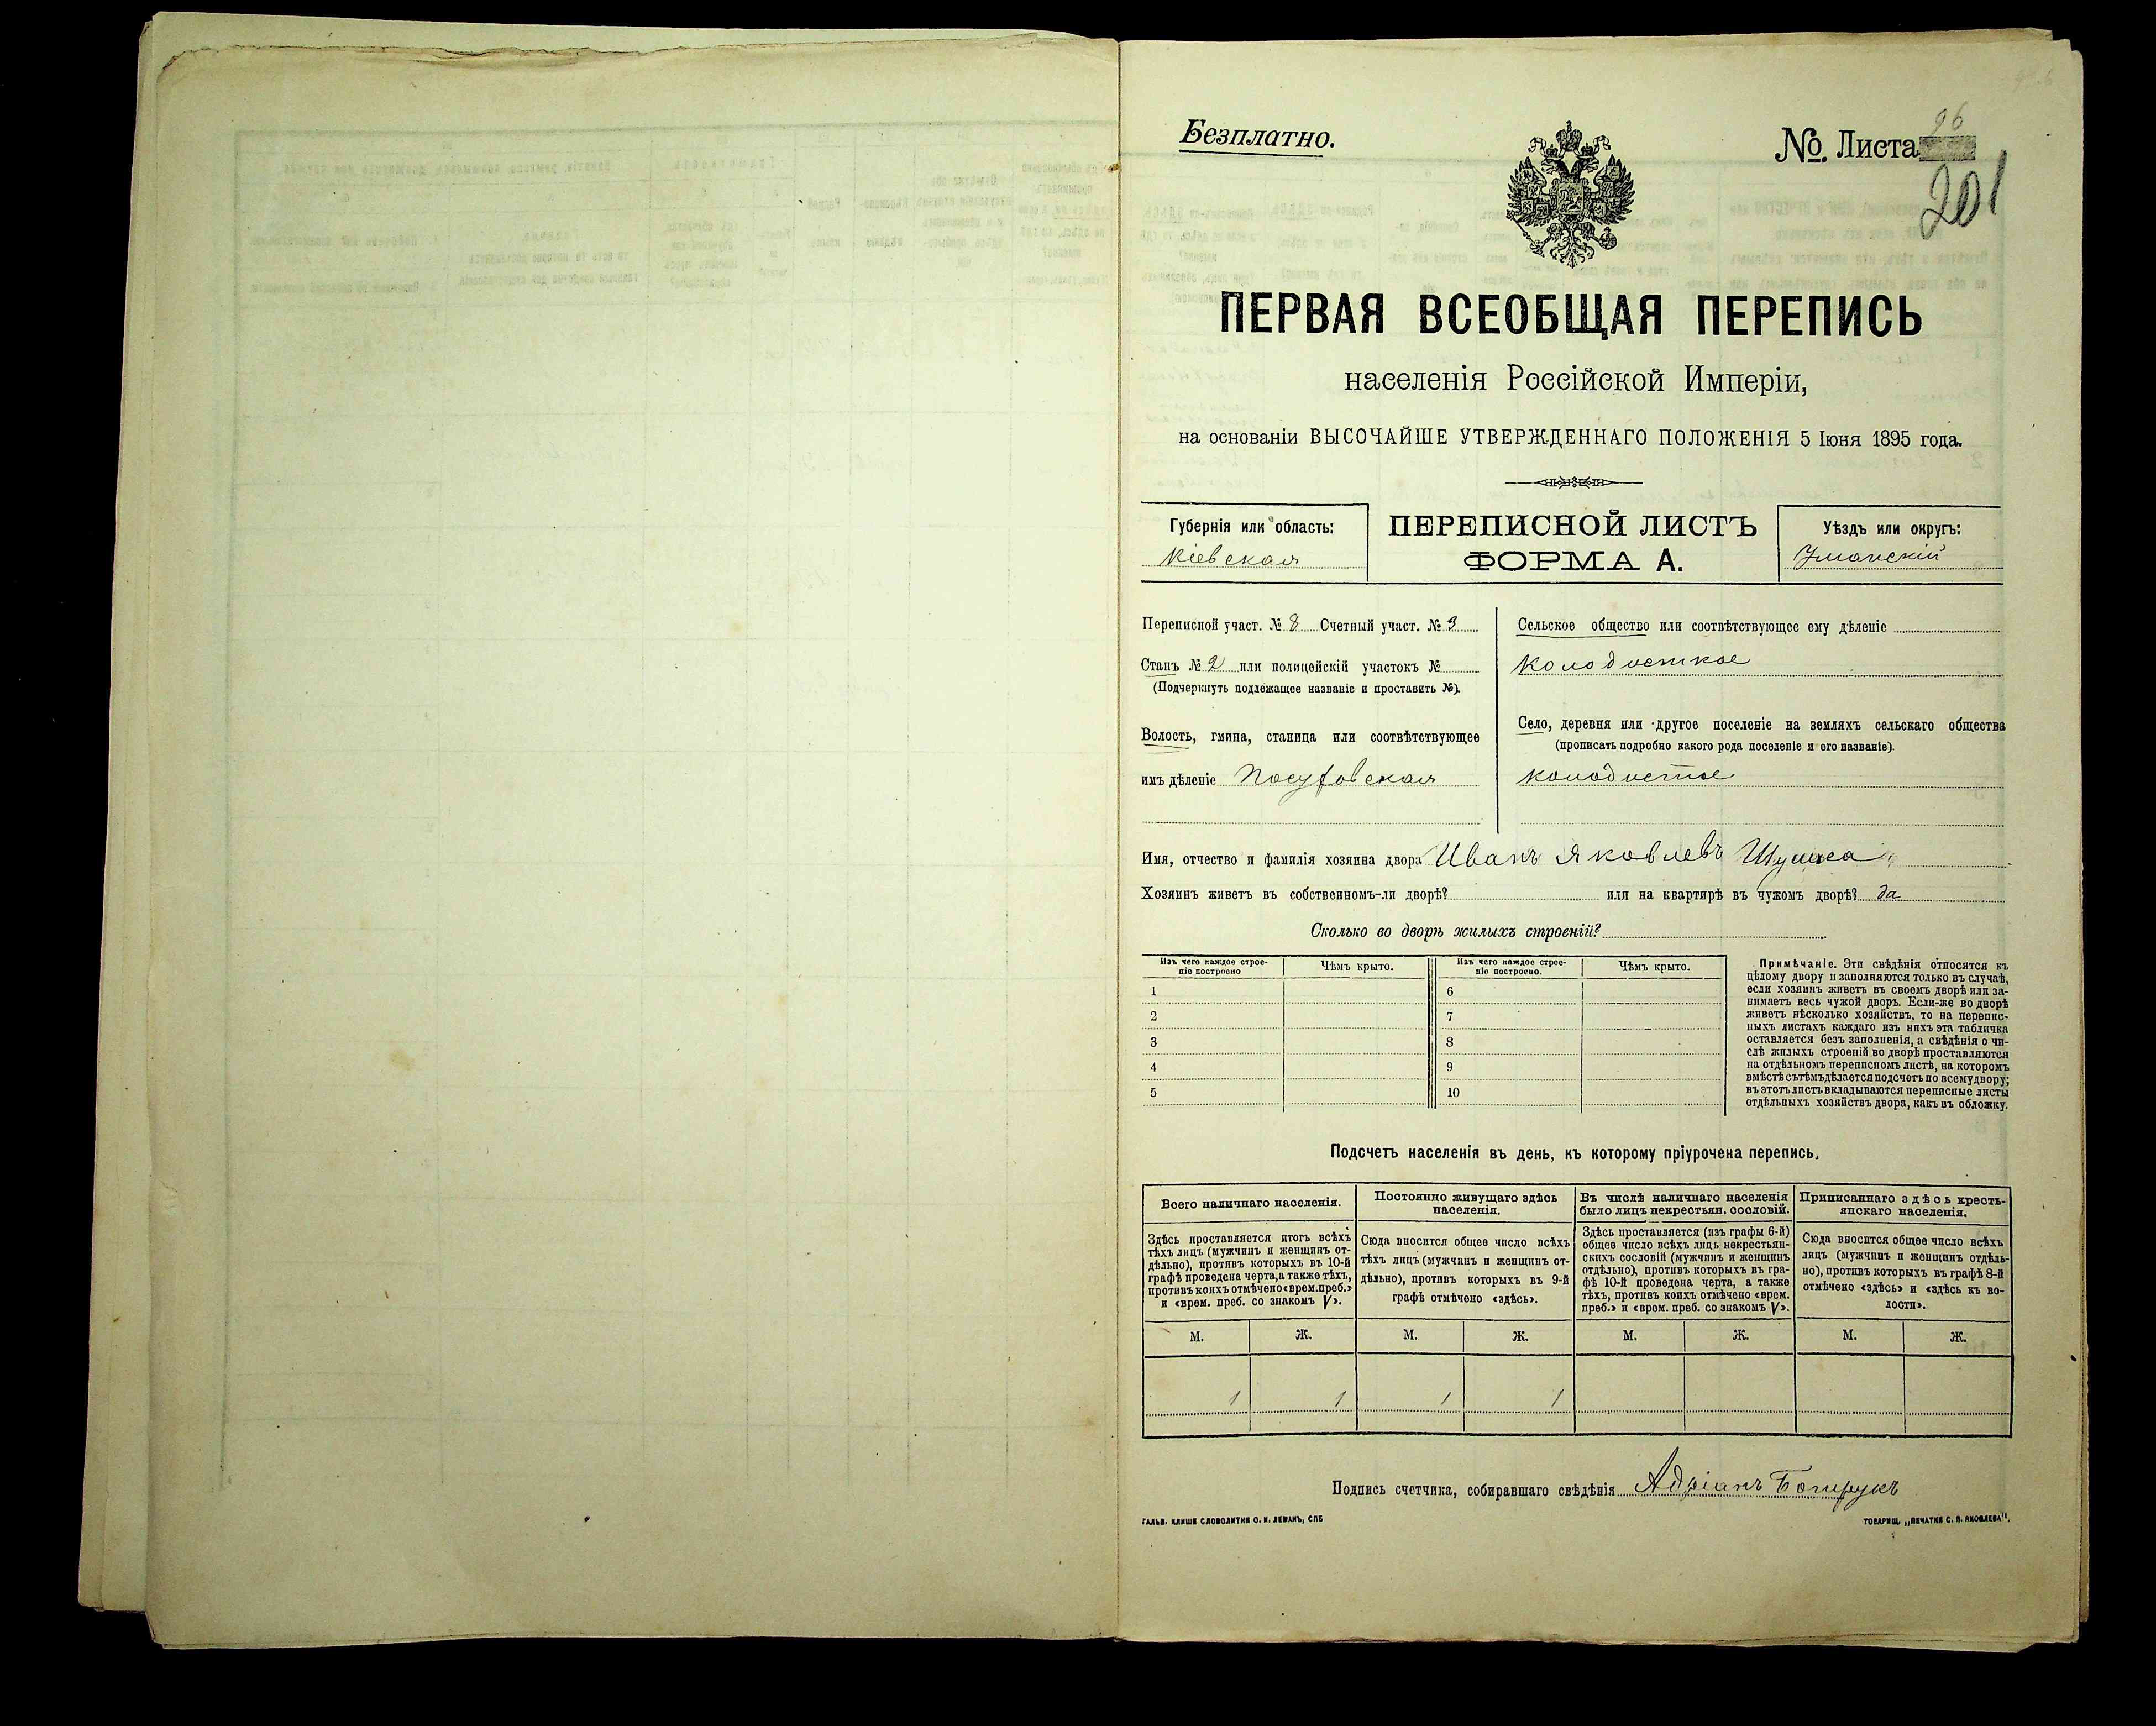 Безплатно.
No. Листа
96
201
ПЕРВАЯ ВСЕОБЩАЯ ПЕРЕПИСЬ
населенія Россійской Имперіи,
на основаніи ВЫСОЧАЙШЕ УТВЕРЖДЕННАГО ПОЛОЖЕНІЯ 5 Іюня 1895 года.
Губернія или область:
Кіевская
ПЕРЕПИСНОЙ ЛИСТЪ
ФОРМА А.
Уѣздъ или округъ:
Уманскій
Переписной участ. № 8 Счетный участ. № 3
Станъ № 2 или полицейскій участокъ №
(Подчеркнуть подлежащее названіе и проставить №).
Волость, гмина, станица или соотвѣтствующее
имъ дѣленіе
Сельское общество или соотвѣтствующее ему дѣленіе
Колодисткое
Село, деревня или другое поселеніе на земляхъ сельскаго общества
(прописать подробно какого рода поселеніе и его названіе).
Колодистое
Имя, отчество и фамилія хозяина двора Иванъ Яковлевъ
Хозяинъ живетъ въ собственномъ-ли дворѣ? или на квартирѣ въ чужомъ дворѣ? да
Сколько во дворѣ жилыхъ строеній?
Изъ чего каждое строе-
ніе построено
Чѣмъ крыто.
Изъ чего каждое строе-
ніе построено.
Чѣмъ крыто.
1 6
2 7
3 8
4 9
5 10
Примѣчаніе. Эти свѣдѣнія относятся къ
цѣлому двору и заполняются только въ случаѣ,
если хозяинъ живетъ въ своемъ дворѣ или за-
нимаетъ весь чужой дворъ. Если-же во дворѣ
живетъ нѣсколько хозяйствъ, то на перепис-
ныхъ листахъ каждаго изъ нихъ эта табличка
оставляется безъ заполненія, а свѣдѣнія о чи-
слѣ жилыхъ строеній во дворѣ проставляются
на отдѣльномъ переписномъ листѣ, на которомъ
вмѣстѣ съ тѣмъ дѣлается подсчетъ по всему двору;
въ этотъ листъ вкладываются переписные листы
отдѣльныхъ хозяйствъ двора, какъ въ обложку.
Подсчетъ населенія въ день, къ которому пріурочена перепись.
Всего наличнаго населенія.
Здѣсь проставляется итогъ всѣхъ
тѣхъ лицъ (мужчинъ и женщинъ от-
дѣльно), противъ которыхъ въ 10-й
графѣ проведена черта, а также тѣхъ,
противъ коихъ отмѣчено «врем. преб.»
и «врем. преб. со знакомъ V».
Постоянно живущаго здѣсь
населенія.
Сюда вносится общее число всѣхъ
тѣхъ лицъ (мужчинъ и женщинъ от-
дѣльно), противъ которыхъ въ 9-й
графѣ отмѣчено «здѣсь».
Въ числѣ наличнаго населенія
было лицъ некрестьян. сословій.
Здѣсь проставляется (изъ графы 6-й)
общее число всѣхъ лицъ некрестьян-
скихъ сословій (мужчинъ и женщинъ
отдѣльно), противъ которыхъ въ гра-
фѣ 10-й проведена черта, а также
тѣхъ, противъ коихъ отмѣчено «врем.
преб.» и «врем. преб. со знакомъ V».
Приписаннаго здѣсь кресть-
янскаго населенія.
Сюда вносится общее число всѣхъ
лицъ (мужчинъ и женщинъ отдѣль-
но), противъ которыхъ въ графѣ 8-й
отмѣчено «здѣсь» и «здѣсь къ во-
лости».
М. Ж. М. Ж. М. Ж. М. Ж.
1 1 1 1
Подпись счетчика, собиравшаго свѣдѣнія Адріанъ
ГАЛЬВ. КЛИШЕ СЛОВОЛИТНИ О. И. ЛЕМАНЪ, СПБ
ТОВАРИЩ. „ПЕЧАТНЯ С. П. ЯКОВЛЕВА“.